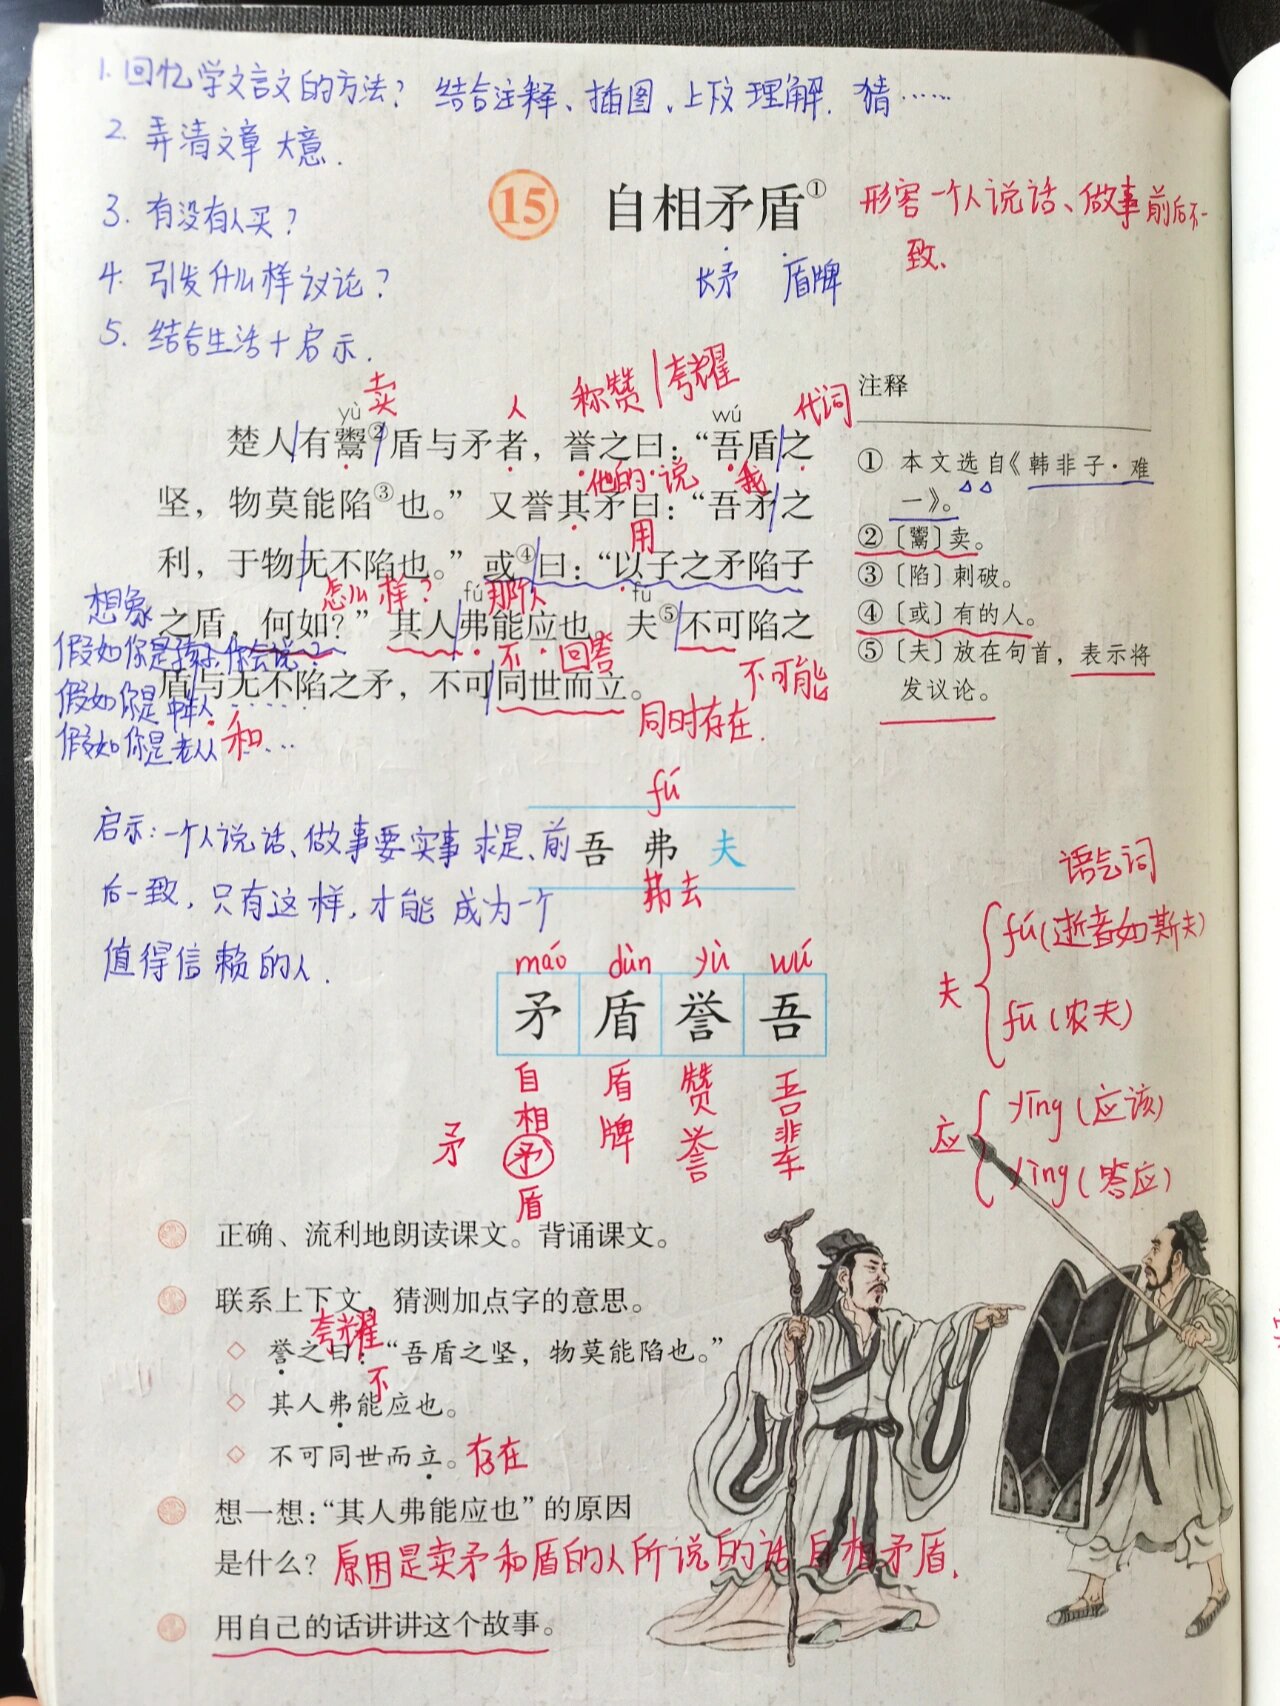 1.回忆学文言文的方法? 结合注释、插图、上下文理解. 猜……
2.弄清文章大意.
3.有没有人买?
4.引发什么样议论?
5.结合生活+启示.
15 自相矛盾①
形容一个人说话、做事前后不一
致.
长矛 盾牌
卖 人 称赞|夸耀 代词
yù wú
楚人有鬻②盾与矛者，誉之曰：“吾盾之
他的 说 我
坚，物莫能陷③也。”又誉其矛曰：“吾矛之
用
利，于物无不陷也。”或④曰：“以子之矛陷子
怎么样? fú 那个人 fú
之盾，何如？”其人弗能应也。夫⑤不可陷之
不 回答 不可能
盾与无不陷之矛，不可同世而立。
和 同时存在.
注释
① 本文选自《韩非子·难
一》。
②〔鬻〕卖。
③〔陷〕刺破。
④〔或〕有的人。
⑤〔夫〕放在句首，表示将
发议论。
想象
假如你是孩子,你会说?
假如你是中年人……
假如你是老人……
启示:一个人说话、做事要实事求是、前
后一致,只有这样,才能成为一个
值得信赖的人.
fú
吾 弗 夫
弗去
máo dùn yù wú
矛 盾 誉 吾
自相矛盾 盾牌 赞誉 吾辈
矛
语气词
夫 fú(逝者如斯夫)
fū(农夫)
应 yīng(应该)
yìng(答应)
正确、流利地朗读课文。背诵课文。
联系上下文，猜测加点字的意思。
夸耀
誉之曰：“吾盾之坚，物莫能陷也。”
不
其人弗能应也。
不可同世而立。存在
想一想：“其人弗能应也”的原因
是什么？原因是卖矛和盾的人所说的话自相矛盾.
用自己的话讲讲这个故事。